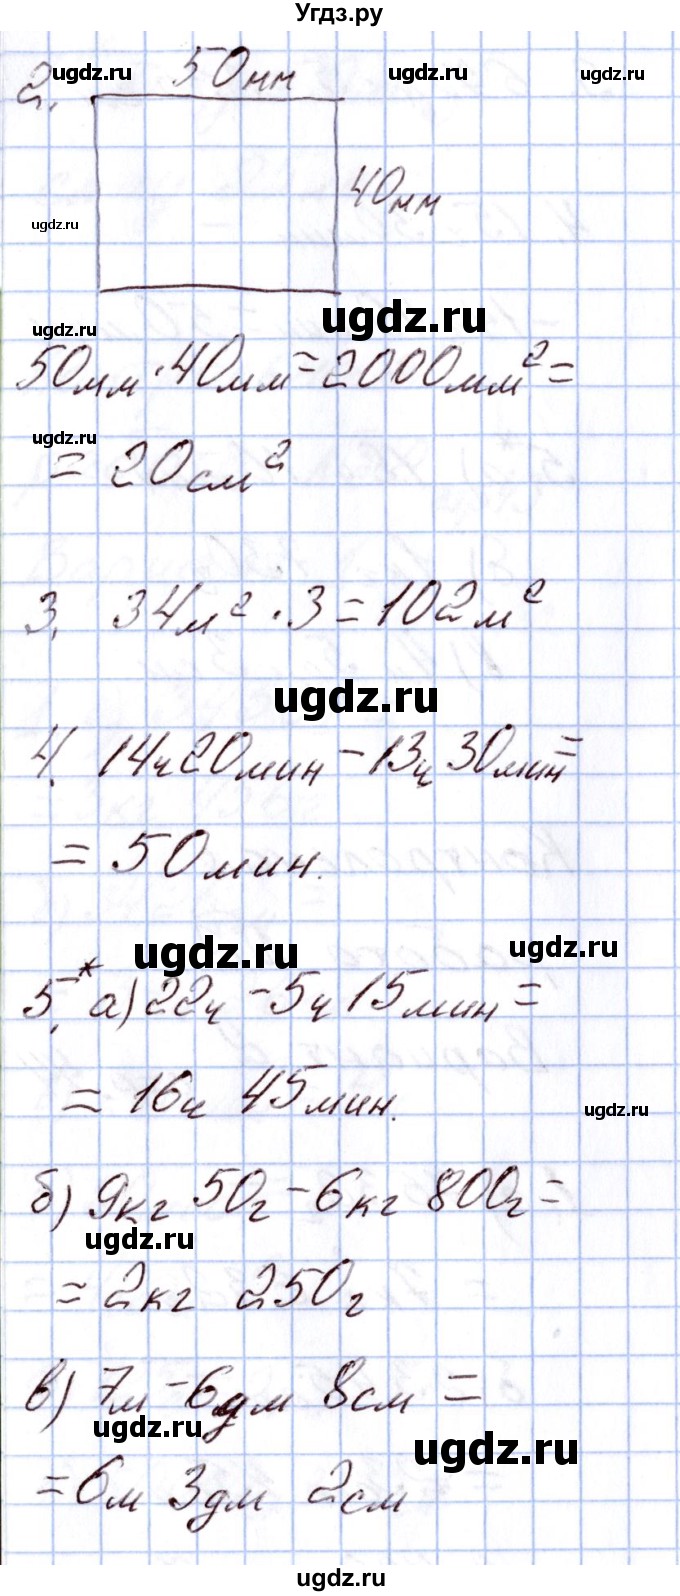 Угдз.ру
ugdz.ru ugdz.ru ugdz.ru
2. 50мм
40мм
ugdz.ru
ugdz.ru
ugdz.ru
50мм·40мм=2000мм²=
ugdz.ru
= 20см²
3. 34м²·3=102м²
ugdz.ru
4. 14ч20мин-13ч30мин=
= 50мин.
ugdz.ru ugdz.ru
5.* а)22ч-5ч15мин=
= 16ч 45мин.
ugdz.ru
б) 9кг 50г-6кг 800г=
ugdz.ru
= 2кг 250г
в) 7м-6дм 8см =
ugdz.ru ugdz.ru
=6м 3дм 2см
ugdz.ru